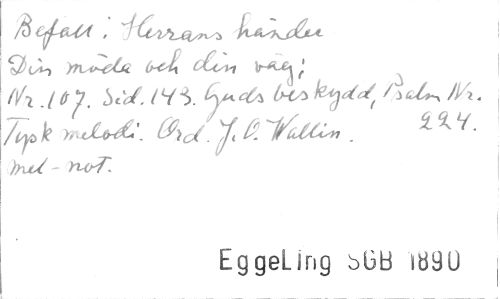 Befall i Herrans händer
Din möda och din väg;
Nr. 107. Sid. 143. Guds beskydd, Psalm Nr. 224.
Tysk melodi. Ord. J. O. Wallin.
mel-not.
EggeLing SGB 1890